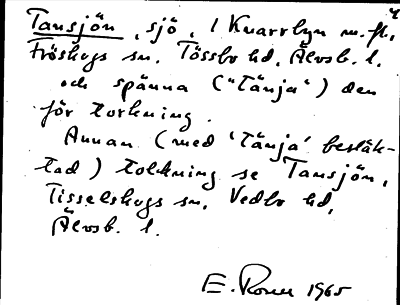 Tansjön, sjö, i Kvarrbyn m.fl.
Fröskogs sn. Tössbo hd, Älvsb. l.
och spänna ("tänja") den
för torkning.
Annan (med 'tänja' besläk-
tad) tolkning se Tansjön,
Tisselskogs sn. Vedbo hd,
Älvsb. l.
E. Rosell 1965